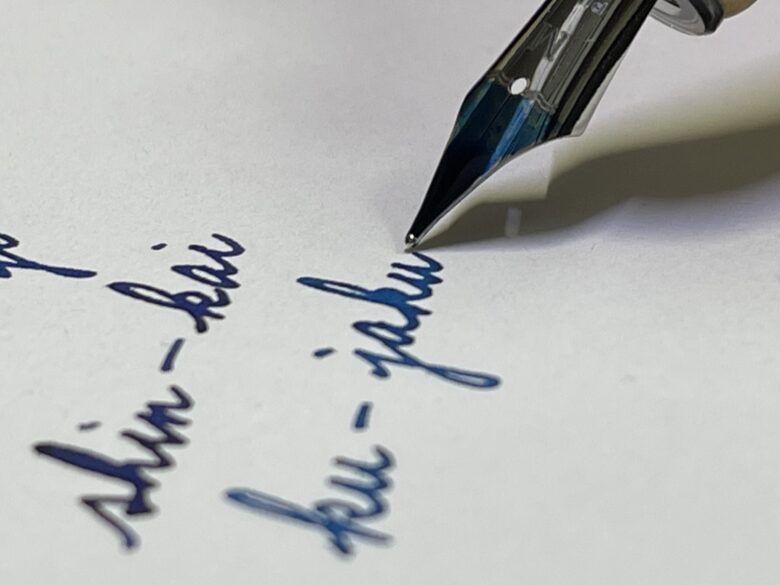 shin-kai
ku-jaku